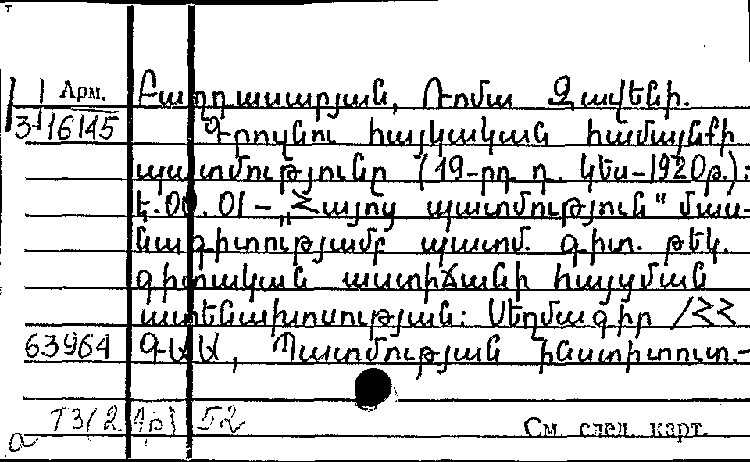 Арм. Բաղդասարյան, Ռոմա Զավենի.
3-16145 Գրոզնու հայկական համայնքի
պատմությունը (19-րդ դ. կես-1920թ.):
Է.00.01 - „Հայոց պատմություն" մաս-
նագիտությամբ պատմ. գիտ. թեկ.
գիտական աստիճանի հայցման
ատենախոսության: Սեղմագիր /ՀՀ
63964 ԳԱԱ, Պատմության ինստիտուտ.-
Т3(2Ар) 52
См. след. карт.